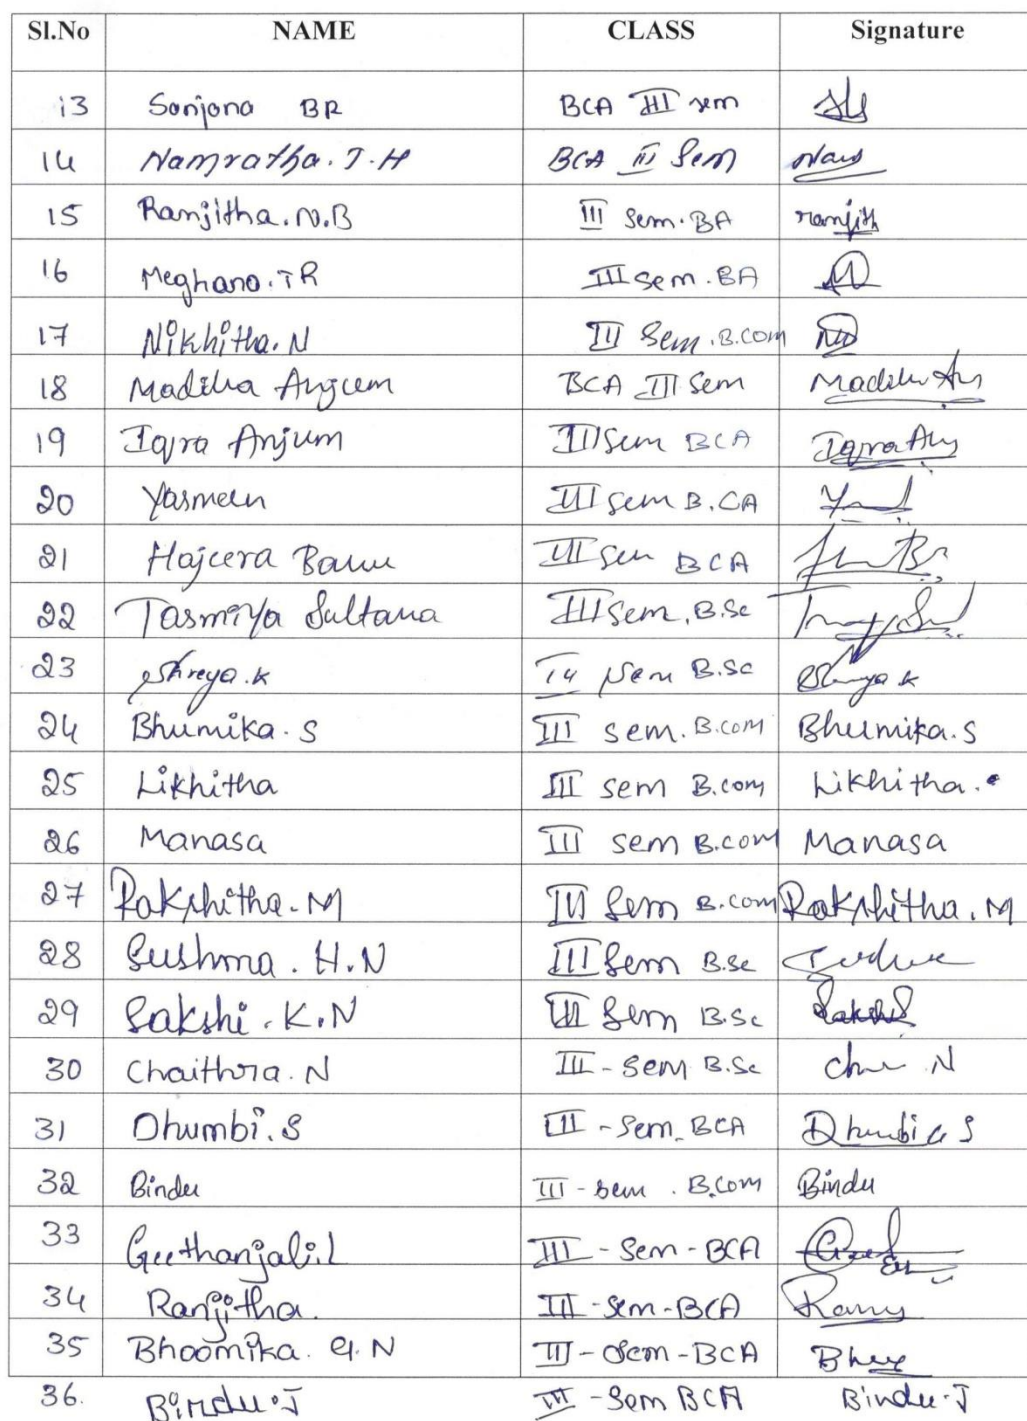 Sl.No NAME CLASS Signature
13 Sanjana BR BCA III sem
14 Namratha. T. H BCA III Sem
15 Ranjitha. N. B III Sem. BA ranjith
16 Meghana. T R III sem. BA
17 Nikhitha. N III Sem. B.com
18 Madiha Anjum BCA III Sem
19 Iqra Anjum III Sem BCA
20 Yasmeen III sem B.CA
21 Hajeera Banu III sem BCA
22 Tasmiya Sultana III sem. B.Sc
23 Shreya. K sem B.Sc
24 Bhumika. S III sem. B.com Bhumika. S
25 Likhitha III sem B.com Likhitha.
26 Manasa III sem B.com Manasa
27 Rakshitha. M III Sem B.com Rakshitha. M
28 Sushma. H. N III Sem B.Sc
29 Sakshi. K. N III Sem B.Sc Sakshi
30 Chaithra. N III - Sem B.Sc
31 Dhumbi. S III - Sem. BCA
32 Bindu III - sem. B.com Bindu
33 Geethanjali. L III - Sem - BCA
34 Ranjitha. III - sem - BCA
35 Bhoomika. G. N III - sem - BCA
36. Bindu. J III - Sem BCA Bindu. J